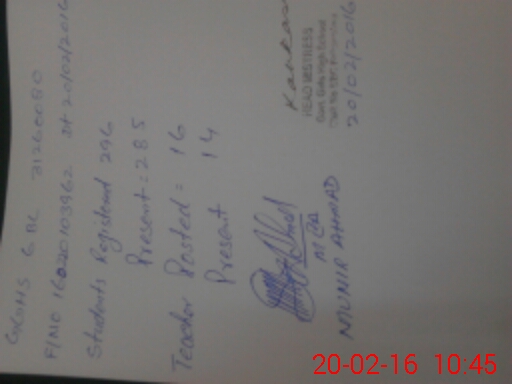 GGHS 6 BC 31260080
Dt 20/02/2016
Students Registered 296
Present = 285
Teacher Posted = 16
Present 14
MEA
MUNIR AHMAD
HEAD MISTRESS
20/02/2016
20-02-16 10:45